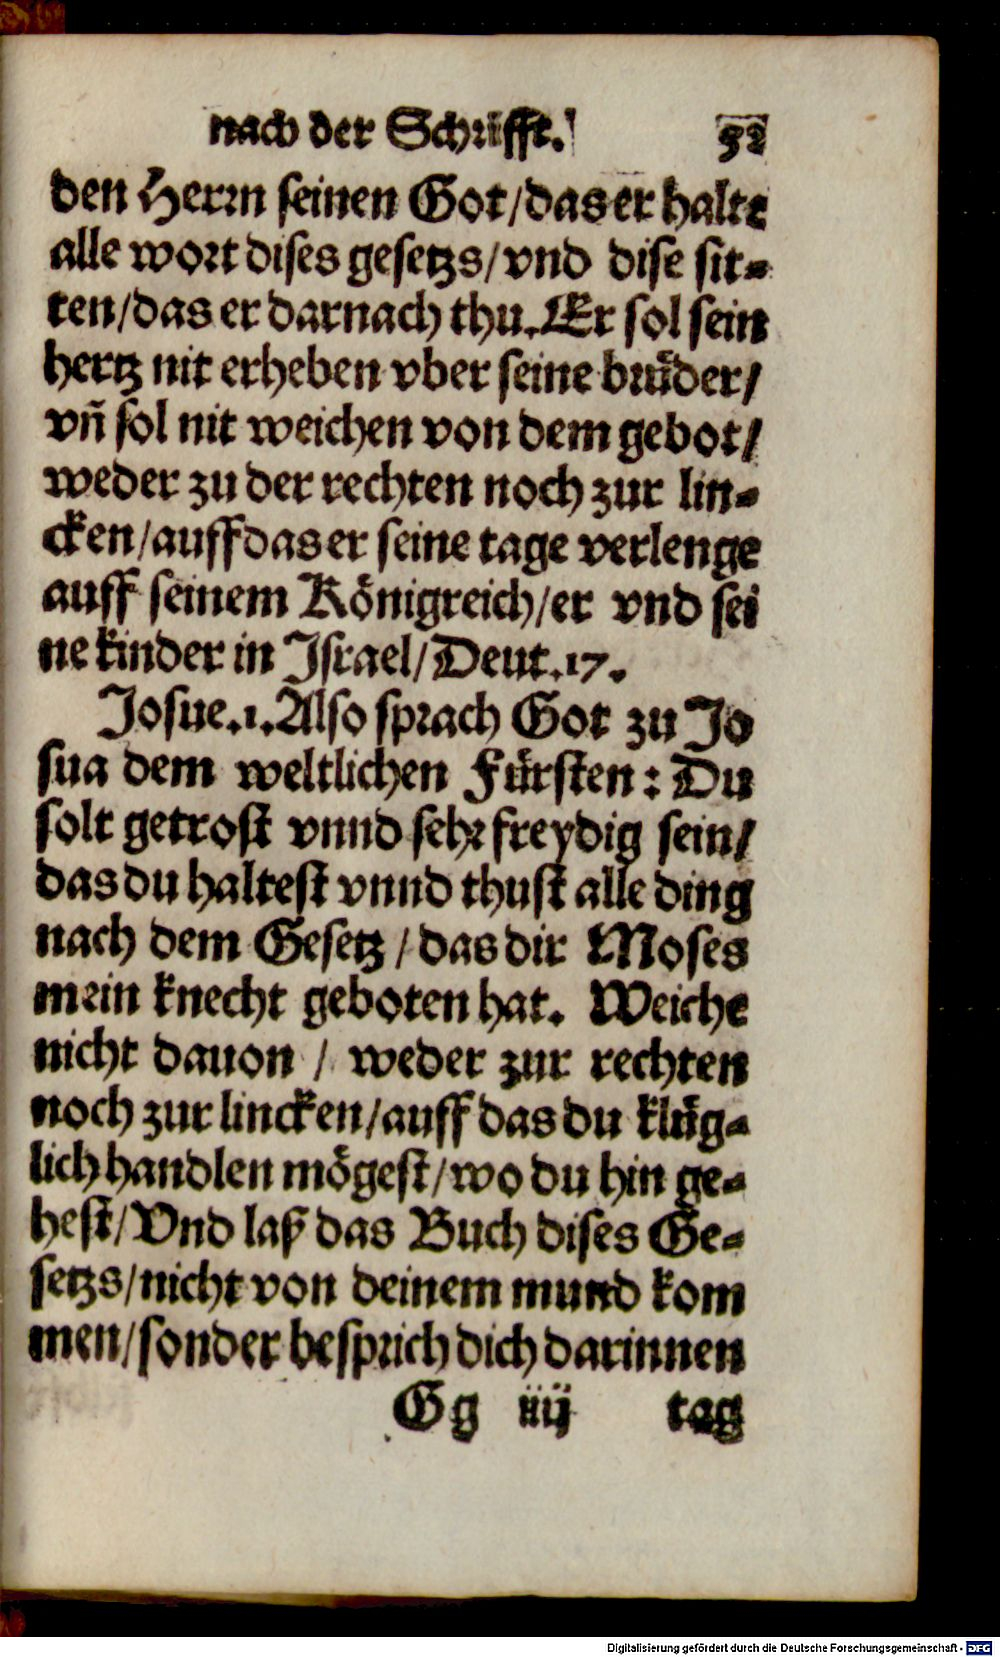 nach der Schrifft. 52
den Herrn seinen Got/das er halte
alle wort dises gesetzs/vnd dise sit-
ten/das er darnach thu. Er sol sein
hertz nit erheben vber seine brůder/
vñ sol nit weichen von dem gebot/
weder zu der rechten noch zur lin-
cken/auff das er seine tage verlenge
auff seinem Königreich/er vnd sei
ne kinder in Israel/Deut.17.
Josue.1. Also sprach Got zu Jo
sua dem weltlichen Fürsten: Du
solt getrost vnnd sehr freydig sein/
das du haltest vnnd thust alle ding
nach dem Gesetz/das dir Moses
mein knecht geboten hat. Weiche
nicht dauon/weder zur rechten
noch zur lincken/auff das du klůg-
lich handlen mögest/wo du hin ge-
hest/Vnd laß das Buch dises Ge-
setzs/nicht von deinem mund kom
men/sonder besprich dich darinnen
Gg iiij tag
Digitalisierung gefördert durch die Deutsche Forschungsgemeinschaft - DFG